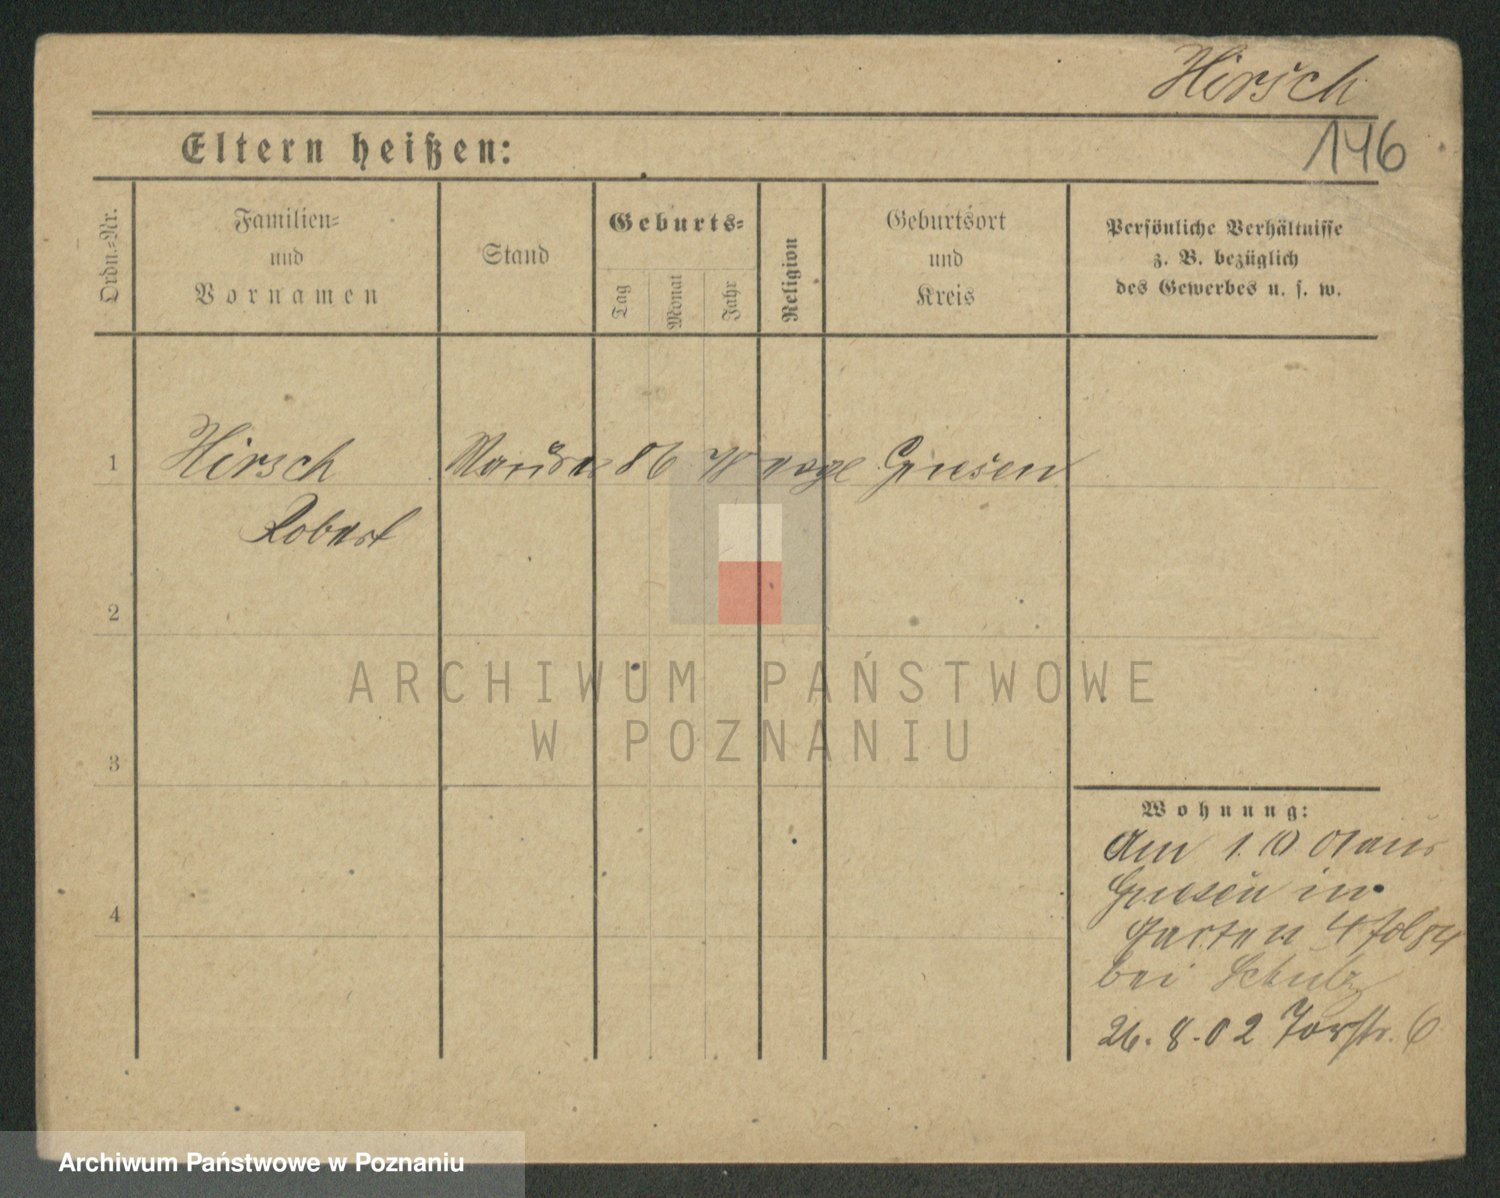 Hirsch
146
Eltern heißen:
Ordn.=Nr.
Familien=
und
Vornamen
Stand
Geburts=
Tag
Monat
Jahr
Religion
Geburtsort
und
Kreis
Persönliche Verhältnisse
z. B. bezüglich
des Gewerbes u. s. w.
1
Hirsch
86
Gnesen
Robert
2
3
4
Wohnung:
Am 1. 10 aus
Gnesen in
Garten 4
bei Schulz
26. 8. 02 Torstr. 6
ARCHIWUM PAŃSTWOWE
W POZNANIU
Archiwum Państwowe w Poznaniu